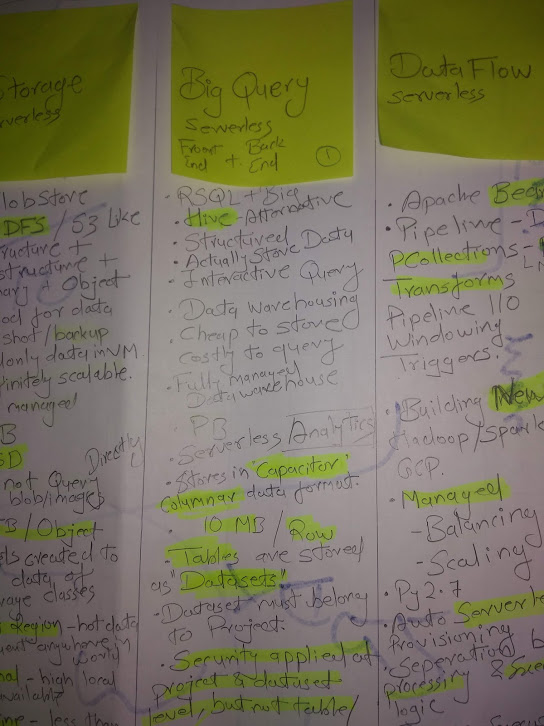 Storage
serverless
lobstore
DFS / S3 Like
ructure +
structure +
nary + Object
ood for data
shot / backup
donly data in VM.
finitely scalable.
managed
B
Directly
not Query
blob/images
TB / Object
ls created to
data of
rage classes
s Region - hot data
anywhere in
World
nal - high local
available
ine - less than
Big Query
Serverless
Front Back
End + End
1
• RSQL + Big
• Hive - Alternative
• Structured
• Actually Store Data
• Interactive Query
• Data warehousing
• Cheap to store
Costly to query
• Fully managed
Data warehouse
PB
• Serverless Analytics
• Stores in "Capacitor"
Columnar data format.
• 10 MB / Row
• Tables are stored
as "Datasets"
• Dataset must belong
to Project.
• Security applied at
project & dataset
level, but not table/
Data Flow
Serverless
• Apache Bea
• Pipeline - D
PCollections -
Transforms
Pipeline I/O
Windowing
Triggers.
• Building New
Hadoop/Spark
GCP.
• Managed
- Balancing
- Scaling
• Py 2.7
• Auto Serverle
Provisioning
• Seperation b
processing &
logic